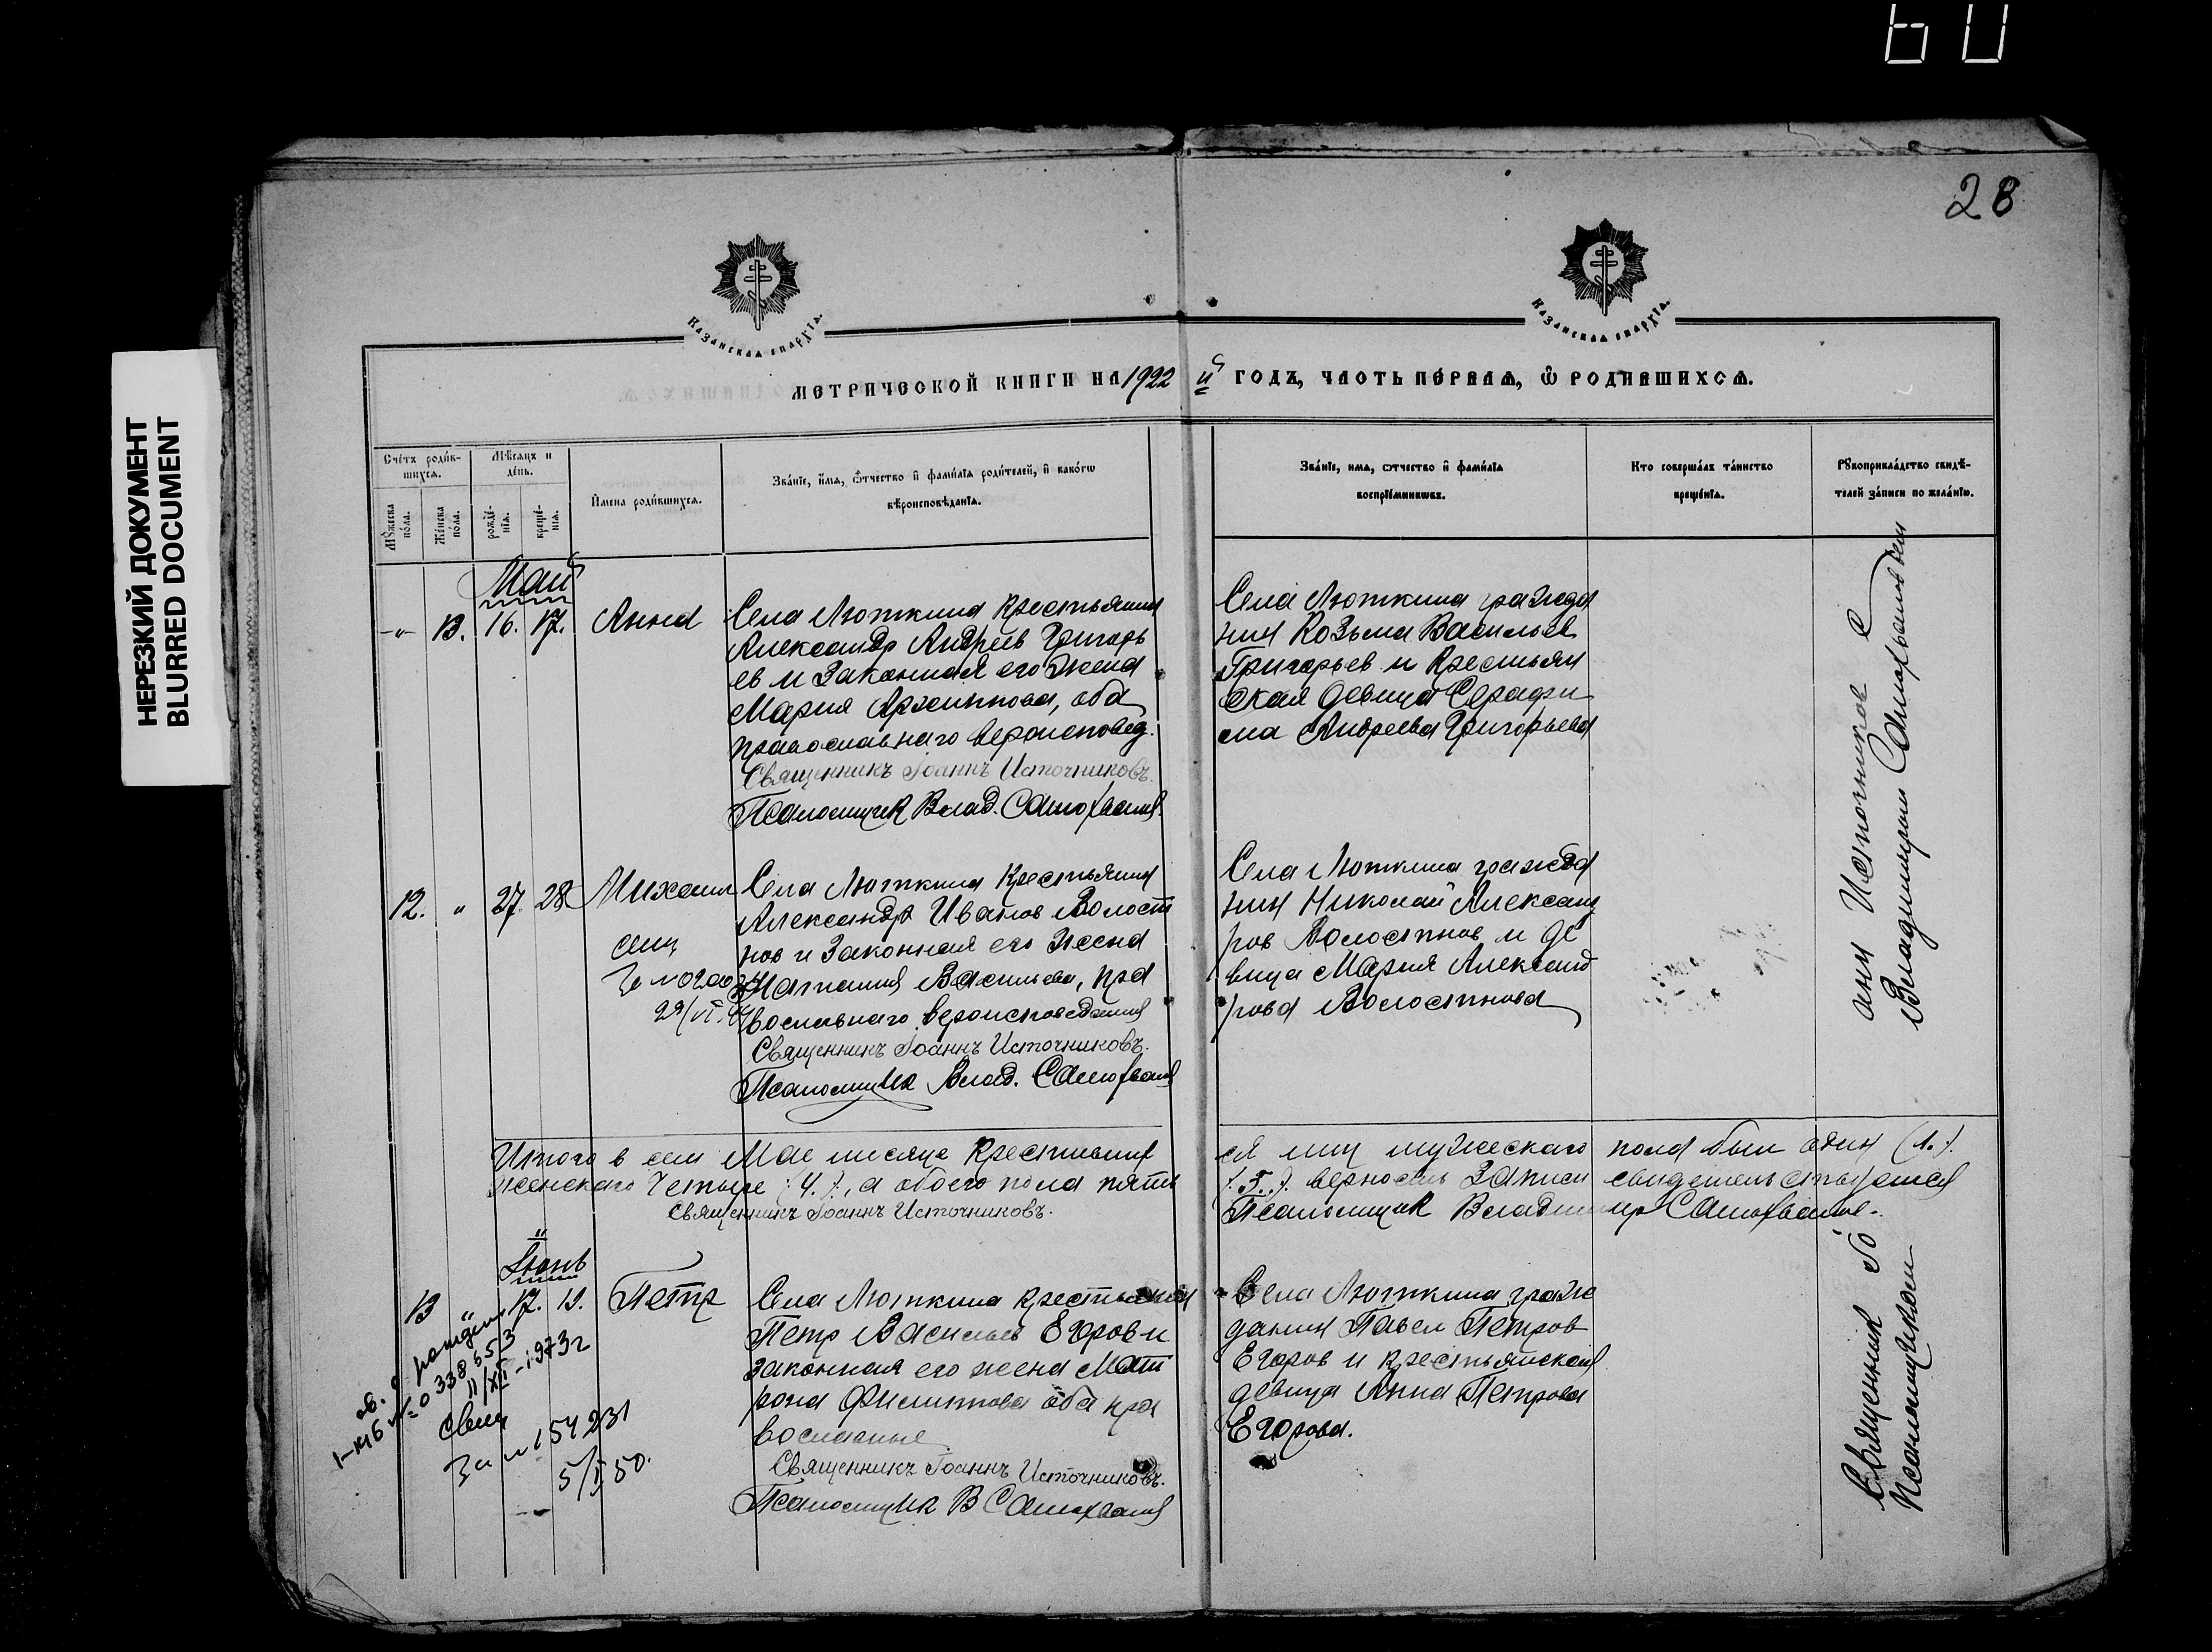 60
НЕРЕЗКИЙ ДОКУМЕНТ
BLURRED DOCUMENT
28
КАЗАНСКАѦ ЕПАРХЇѦ.
КАЗАНСКАѦ ЕПАРХЇѦ.
МЕТРИЧЕСКОЙ КНИГИ НА 1922 й ГОДЪ, ЧАСТЬ ПЕРВАѦ, Ѡ РОДИВШИХСѦ.
Счетъ родившихсѧ.
Мꙋжеска пола.
Женска пола.
Мѣсѧцъ и день.
рожденїѧ.
крещенїѧ.
Имена родившихсѧ.
Званїе, имѧ, ѻтчество и фамилїѧ родителей, и какогѡ
вѣроисповѣданїѧ.
Званїе, имѧ, ѻтчество и фамилїѧ
воспрїемникѡвъ.
Кто совершалъ таинство
крещенїѧ.
Рꙋкоприкладство свидѣ-
телей записи по желанїю.
Май
-"- 13. 16. 17. Анна
Села Люткина крестьянин
Александр Андреев Григорь
ев и законная его жена
Мария Архиппова, оба
православнаго вероисповед.
Священникъ Іоаннъ Источниковъ.
Псаломщик Влад. Самохвалов.
Села Люткина гражда
нин Козьма Васильев
Григорьев и крестьян
ская девица Серафи
ма Андреева Григорьева
12. " 27. 28 Михаил
Села Люткина крестьянин
Александр Иванов Волост
нов и законная его жена
Наталия Васильева, пра
вославнаго вероисповедания
Священникъ Іоаннъ Источниковъ.
Псаломщик Влад. Самохвалов
Села Люткина гражда
нин Николай Александ
ров Волостнов и де
вица Мария Александ
рова Волостнова
29/VI.
Итого в сем Мае месяце крестивших
ся лиц мужескаго пола был один (1.).
женскаго четыре (4.), а обоего пола пять
(5.). верность записи свидетельствуется
Священникъ Іоаннъ Источниковъ.
Псаломщик Владимир Самохвалов.
Июнь
13 " 17. 19. Петр
Села Люткина крестьянин
Петр Васильев Егоров и
законная его жена Мат
рона Филиппова оба пра
вославные
Священникъ Іоаннъ Источниковъ.
Псаломщик В Самохвалов
Села Люткина граж
данин Павел Петров
Егоров и крестьянская
девица Анна Петрова
Егорова.
св. о рождении
I-КБ № 0338653
11/XII-1973г
Свид
За № 154231
5/I 50.
Священник Іоанн Источников С
Псаломщиком Владимиром Самохваловым